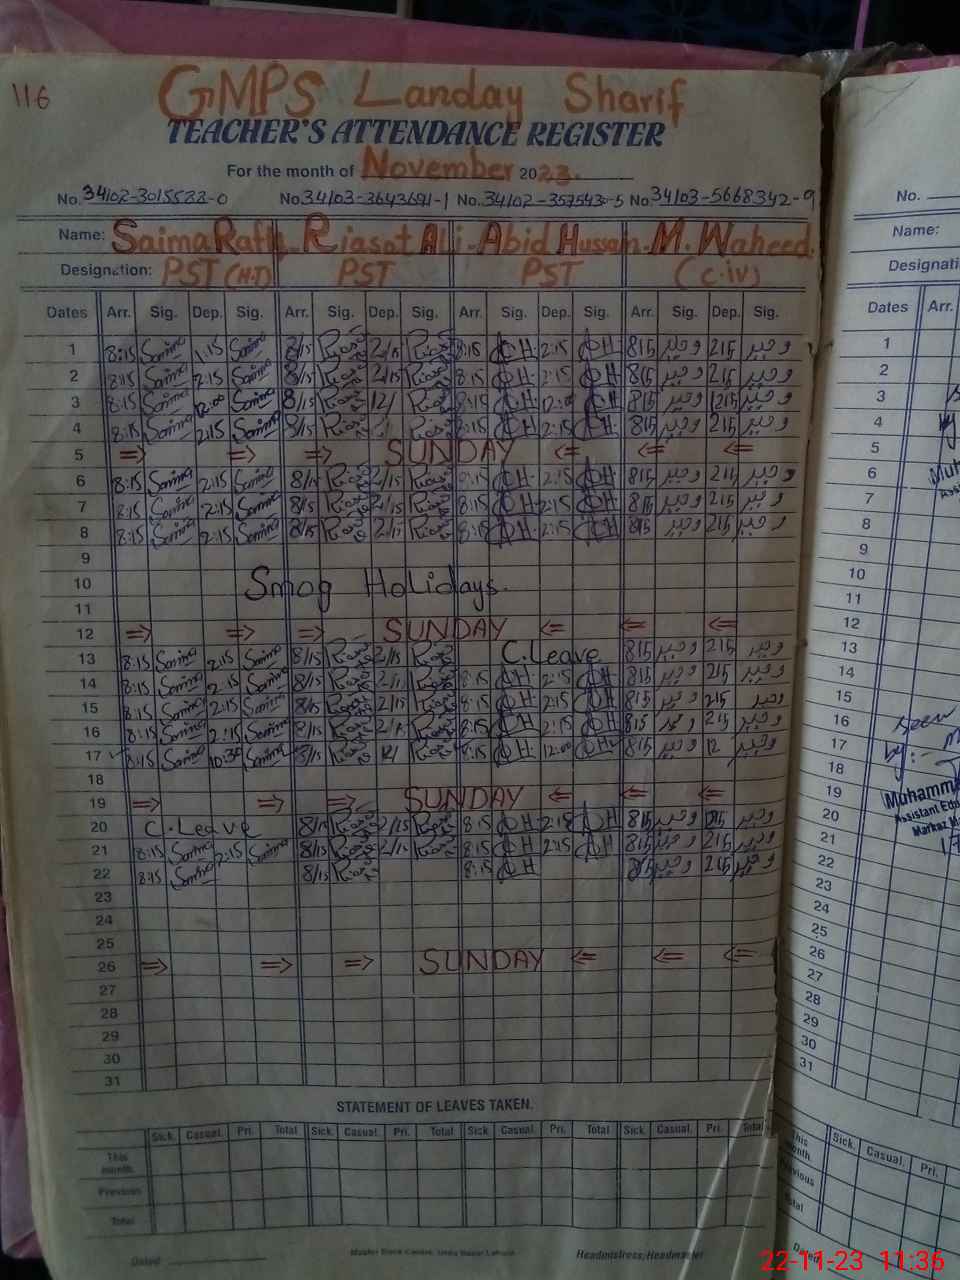 116
GMPS Landay Sharif
TEACHER'S ATTENDANCE REGISTER
For the month of November 2023.
No. 34102-3015522-0 No 34103-3643691-1 No. 34102-3575430-5 No 34103-5668342-9
Name: Saima Rafiq. Riasat Ali. Abid Hussain. M. Waheed.
Designation: PST (H.T) PST PST (C.iv)
Dates Arr. Sig. Dep. Sig. Arr. Sig. Dep. Sig. Arr. Sig. Dep. Sig. Arr. Sig. Dep. Sig.
1 8:15 Saima 1:15 Saima 8/15 Riasat 2/15 Riasat 8:15 AH 2:15 AH 815 وحید 215 وحید
2 8:15 Saima 2:15 Saima 8/15 Riasat 2/15 Riasat 8:15 AH 2:15 AH 815 وحید 215 وحید
3 8:15 Saima 12:00 Saima 8/15 Riasat 12/ Riasat 8:15 AH 12:00 AH 815 وحید 1215 وحید
4 8:15 Saima 2:15 Saima 8/15 Riasat Riasat 8:15 AH 2:15 AH 815 وحید 215 وحید
5 ⇒ ⇒ ⇒ SUNDAY ⇐ ⇐ ⇐
6 8:15 Saima 2:15 Saima 8/15 Riasat 2/15 Riasat 8:15 AH 2:15 AH 815 وحید 215 وحید
7 8:15 Saima 2:15 Saima 8/15 Riasat 2/15 Riasat 8:15 AH 2:15 AH 815 وحید 215 وحید
8 8:15 Saima 2:15 Saima 8/15 Riasat 2/15 Riasat 8:15 AH 2:15 AH 815 وحید 215 وحید
9
10 Smog Holidays.
11
12 ⇒ ⇒ ⇒ SUNDAY ⇐ ⇐ ⇐
13 8:15 Saima 2:15 Saima 8/15 Riasat 2/15 Riasat C.Leave 815 وحید 215 وحید
14 8:15 Saima 2:15 Saima 8/15 Riasat 2/15 Riasat 8:15 AH 2:15 AH 815 وحید 215 وحید
15 8:15 Saima 2:15 Saima 8/15 Riasat 2/15 Riasat 8:15 AH 2:15 AH 815 وحید 215 وحید
16 8:15 Saima 2:15 Saima 8/15 Riasat 2/15 Riasat 8:15 AH 2:15 AH 815 وحید 215 وحید
17 8:15 Saima 10:35 Saima 8/15 Riasat 12/ Riasat 8:15 AH 12:00 AH 815 وحید 12 وحید
18
19 ⇒ ⇒ ⇒ SUNDAY ⇐ ⇐ ⇐
20 C.Leave 8/15 Riasat 2/15 Riasat 8:15 AH 2:15 AH 815 وحید 215 وحید
21 8:15 Saima 2:15 Saima 8/15 Riasat 2/15 Riasat 8:15 AH 2:15 AH 815 وحید 215 وحید
22 8:15 Saima 8/15 Riasat 8:15 AH 815 وحید 215 وحید
23
24
25
26 ⇒ ⇒ ⇒ SUNDAY ⇐ ⇐ ⇐
27
28
29
30
31
STATEMENT OF LEAVES TAKEN.
Sick. Casual. Pri. Total Sick. Casual. Pri. Total Sick. Casual. Pri. Total Sick. Casual. Pri. Total
This month.
Previous
Total
Dated Headmistress/Headmaster
No.
Name:
Designati
Dates Arr.
1
2
3
4
5
6
7
8
9
10
11
12
13
14
15
16 Seen
17 by:- M
18
19 Muhamm
20 Assistant Edu
21 Markaz
22
23
24
25
26
27
28
29
30
31
Sick. Casual. Pri.
This month.
Previous
Total
Dated
22-11-23 11:36